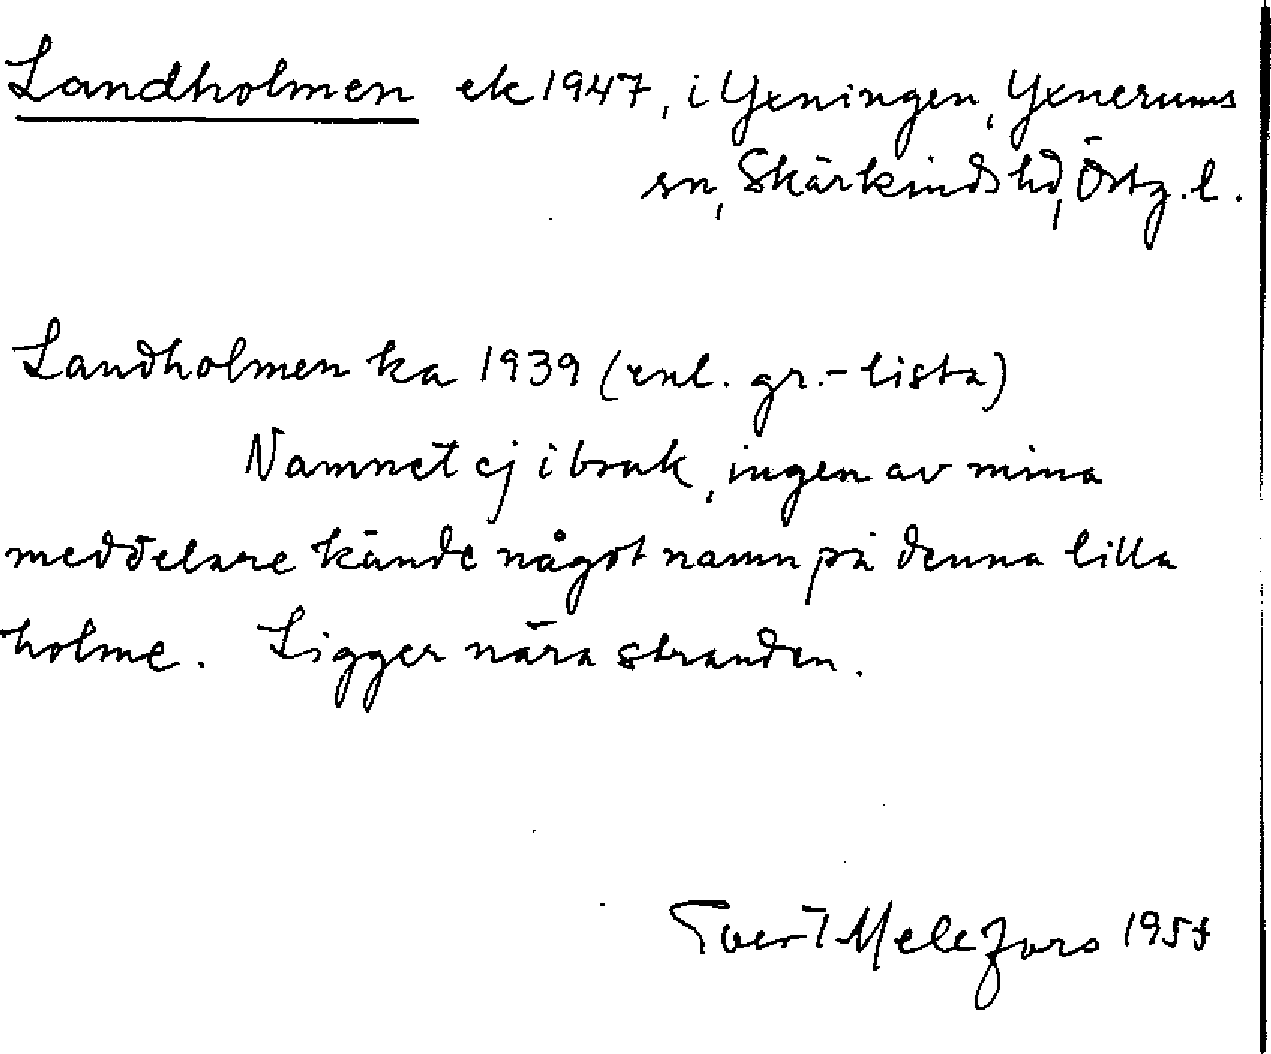 Landholmen ek 1947, i Yxningen, Yxnerums
sn, Skärkinds hd, Östg. l.
Landholmen ka 1939 (enl. gr.-lista)
Namnet ej i bruk, ingen av mina
meddelare kände något namn på denna lilla
holme. Ligger nära stranden.
Evert Melefors